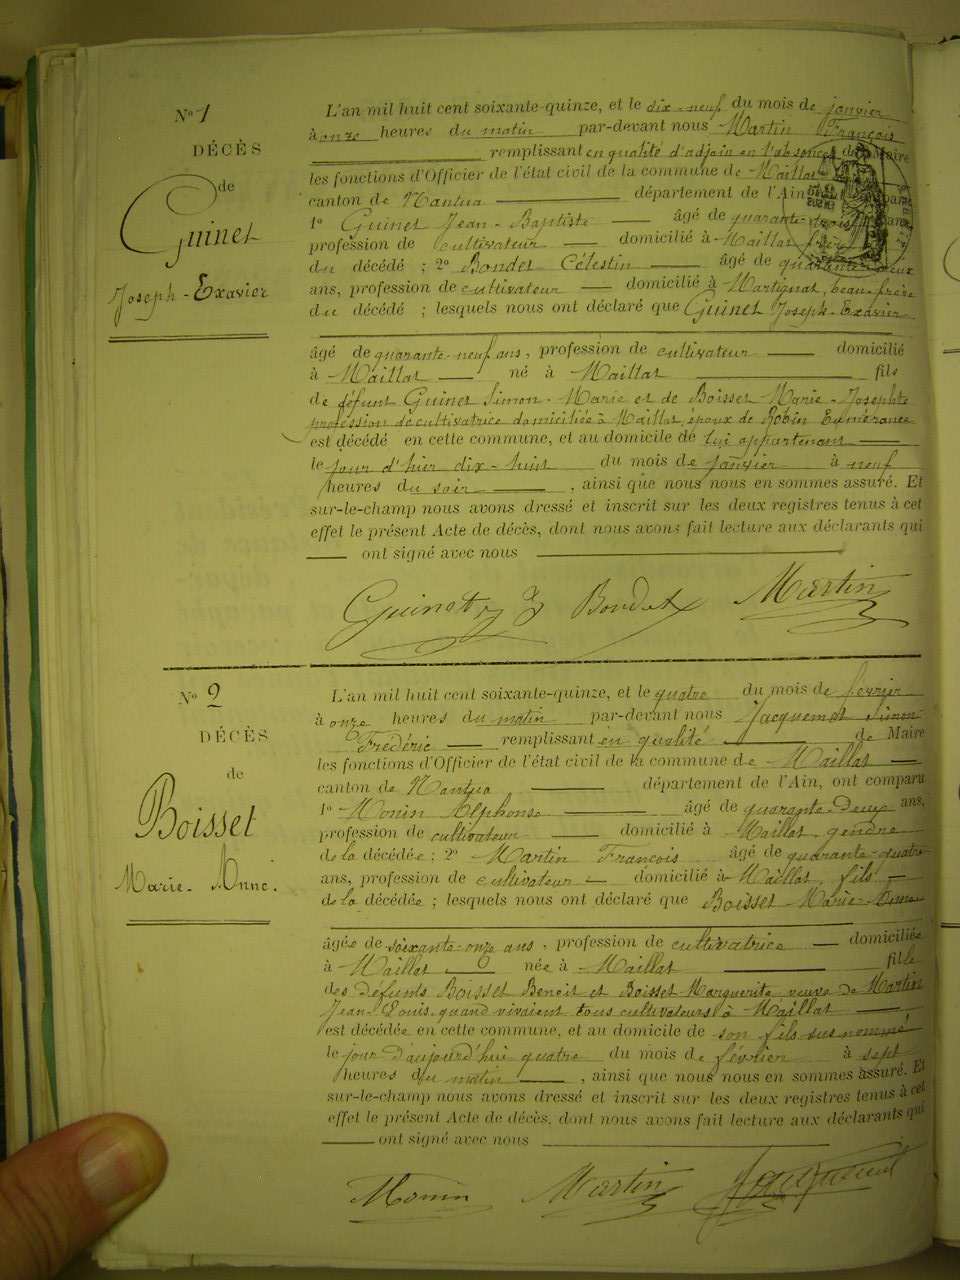 N° 1
DÉCÈS
de
Guinet
Joseph-Exavier
L'an mil huit cent soixante-quinze, et le dix-neuf du mois de janvier
à onze heures du matin par-devant nous Martin François
remplissant en qualité d'adjoin en l'absence de Maire
les fonctions d'Officier de l'état civil de la commune de Maillat
canton de Nantua département de l'Ain
1° Guinet Jean-Baptiste âgé de quarante-trois
profession de cultivateur domicilié à Maillat frère
du décédé ; 2° Bondet Célestin âgé de quarante deux
ans, profession de cultivateur domicilié à Martignat, beau-frère
du décédé ; lesquels nous ont déclaré que Guinet Joseph-Exavier
âgé de quarante-neuf ans, profession de cultivateur domicilié
à Maillat né à Maillat fils
de défunt Guinet Simon-Marie et de Boisset Marie-Josephte
profession de cultivatrice domiciliée à Maillat, époux de Robin Euméranec
est décédé en cette commune, et au domicile de lui appartenant
le jour d'hier dix-huit du mois de janvier à neuf
heures du soir , ainsi que nous nous en sommes assuré. Et
sur-le-champ nous avons dressé et inscrit sur les deux registres tenus à cet
effet le présent Acte de décès, dont nous avons fait lecture aux déclarants qui
ont signé avec nous
Guinet J Bondet Martin
N° 2
DÉCÈS
de
Boisset
Marie-Anne.
L'an mil huit cent soixante-quinze, et le quatre du mois de février
à onze heures du matin par-devant nous Jacquemet Simon
Frédéric remplissant en qualité de Maire
les fonctions d'Officier de l'état civil de la commune de Maillat
canton de Nantua département de l'Ain, ont comparu
1° Monin Alphonse âgé de quarante-deux ans,
profession de cultivateur domicilié à Maillat, gendre
de la décédée ; 2° Martin François âgé de quarante-quatre
ans, profession de cultivateur domicilié à Maillat, fils
de la décédée ; lesquels nous ont déclaré que Boisset Marie-Anne
âgée de soixante-onze ans, profession de cultivatrice domiciliée
à Maillat née à Maillat fille
des défunts Boisset Benoit et Boisset Marguerite veuve de Martin
Jean-Louis quand vivaient tous cultivateurs à Maillat
est décédée en cette commune, et au domicile de son fils sus nommé
le jour d'aujourd'hui quatre du mois de février à sept
heures du matin , ainsi que nous nous en sommes assuré. Et
sur-le-champ nous avons dressé et inscrit sur les deux registres tenus à cet
effet le présent Acte de décès, dont nous avons fait lecture aux déclarants qui
ont signé avec nous
Monin Martin Jacquemet